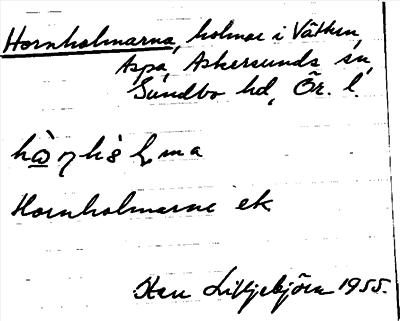 Hornholmarna, holmar i Vättern,
Aspa, Askersunds sn,
Sundbo hd, Ör. l.
Hornholmarne ek
Sten Lilljebjörn 1955.